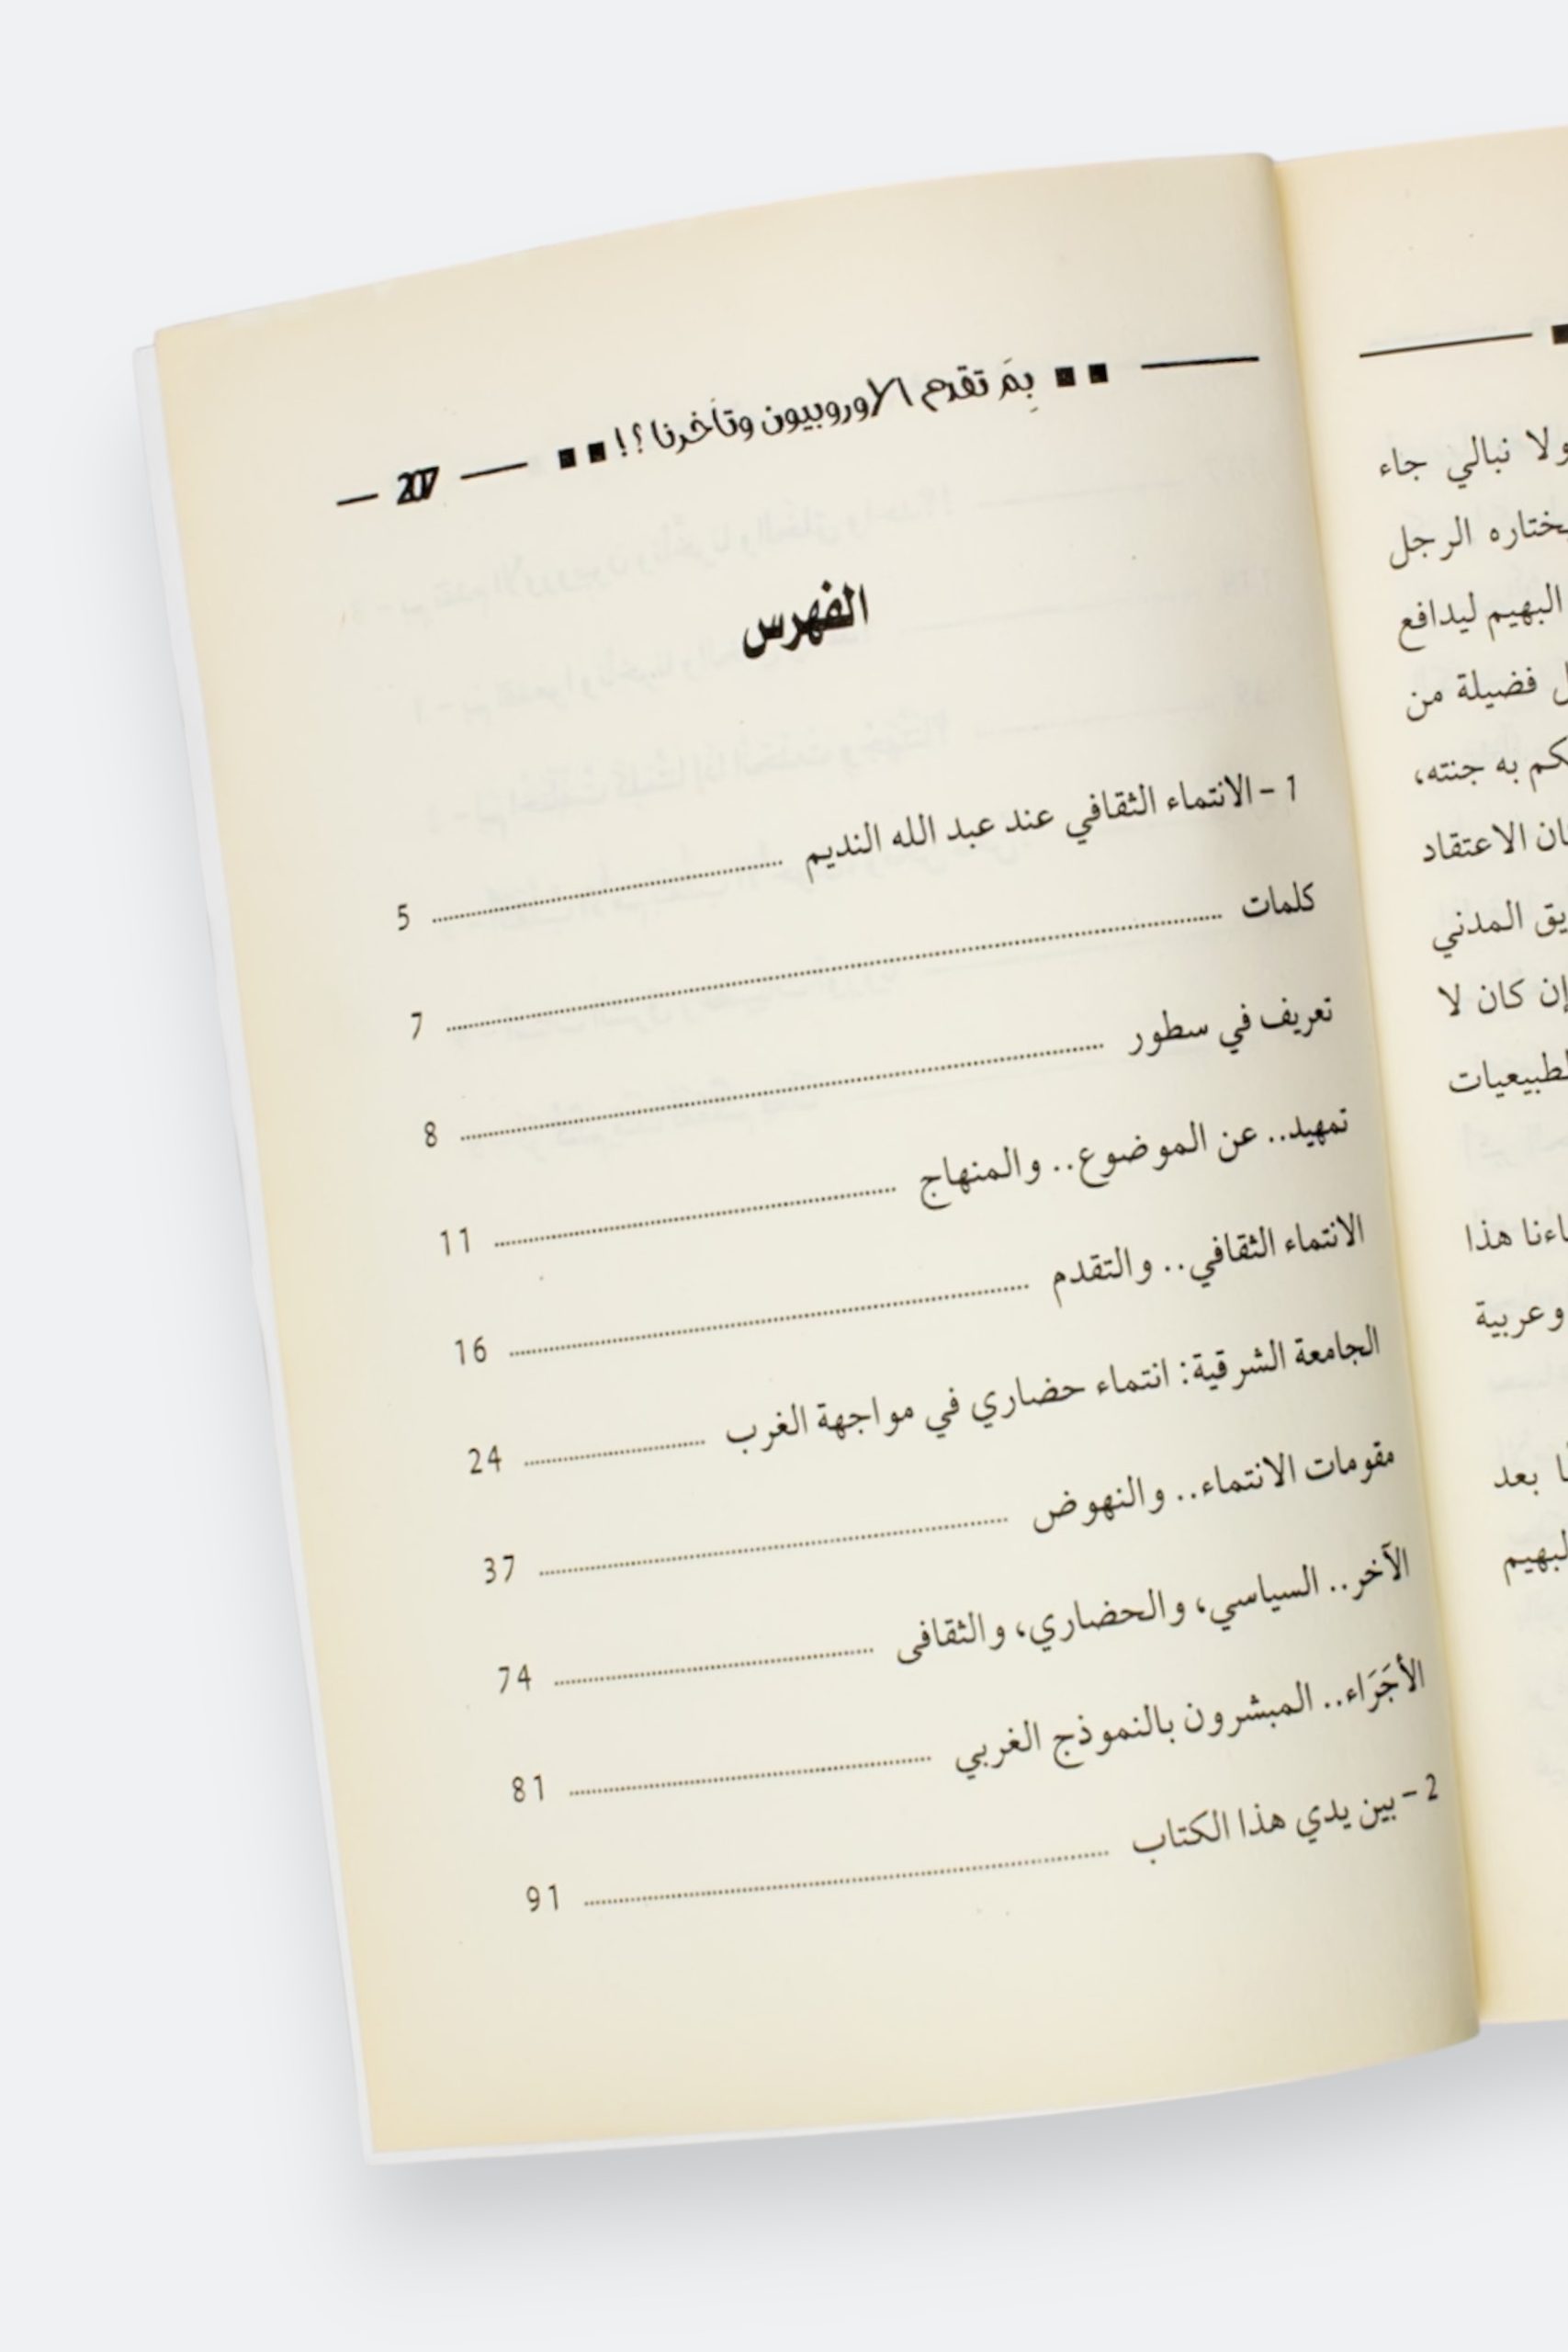 بِمَ تقدم الاوروبيون وتأخرنا؟! 207
الفهرس
1 - الانتماء الثقافي عند عبد الله النديم 5
كلمات 7
تعريف في سطور 8
تمهيد.. عن الموضوع.. والمنهاج 11
الانتماء الثقافي.. والتقدم 16
الجامعة الشرقية: انتماء حضاري في مواجهة الغرب 24
مقومات الانتماء.. والنهوض 37
الآخر.. السياسي، والحضاري، والثقافى 74
الأجَرَاء.. المبشرون بالنموذج الغربي 81
2 - بين يدي هذا الكتاب 91
ولا نبالي جاء
الرجل
البهيم ليدافع
فضيلة من
به جنته،
الاعتقاد
المدني
إن كان لا
هذا
وعربية
بعد